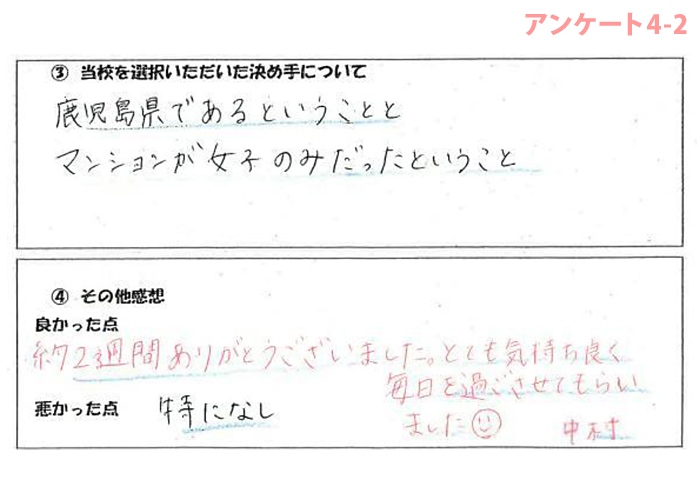 アンケート4-2
③ 当校を選択いただいた決め手について
鹿児島県であるということと
マンションが女子のみだったということ
④ その他感想
良かった点
約2週間ありがとうございました。とても気持ち良く
毎日を過ごさせてもらい
ました
悪かった点 特になし
中村